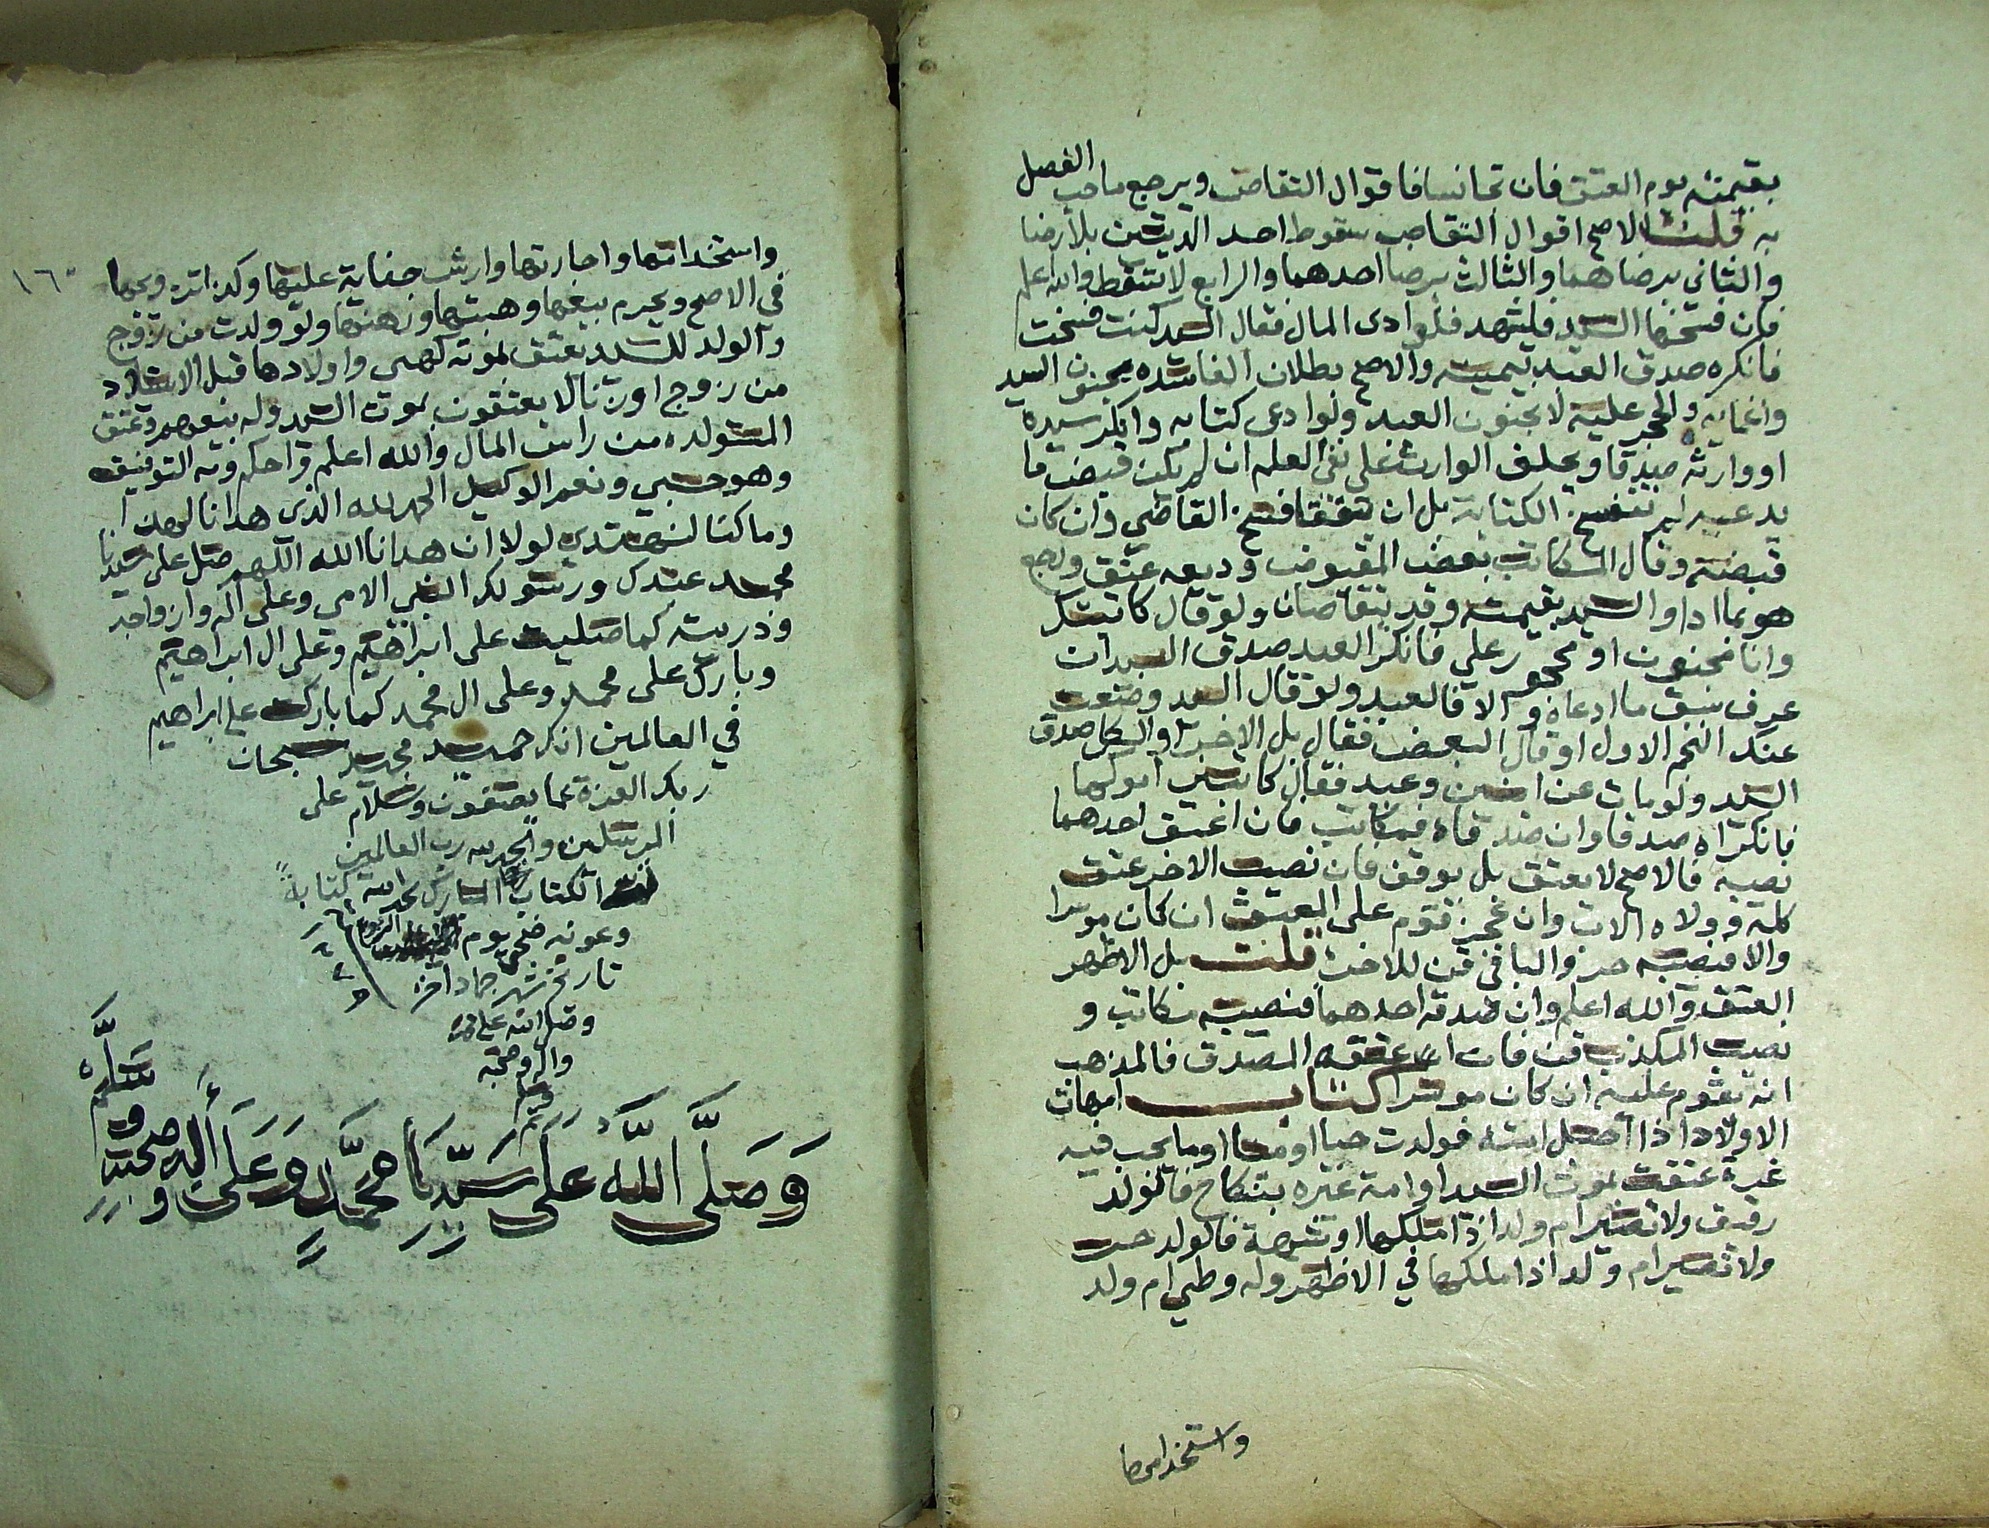 بقيمته يوم العتق فان تجانسا فاقوال التقاص ويرجع صاحب الفصل
به قلت الاصح اقوال التقاص سقوط احد الدينين بلا رضا
والثاني برضاهما والثالث برضا احدهما والرابع لا يسقط والله اعلم
فان فسخها السيد فليشهد فلو ادى المال فقال السيد كنت فسخت
فانكره صدق العبد بيمينه والاصح بطلان الفاسده بجنون السيد
واغمايه والحجر عليه لا بجنون العبد ولو ادعى كتابه وانكر سيده
او وارثه صدقا ويحلف الوارث على نفي العلم ان لم يكن قبض ما
يدعيه لم تنفسخ الكتابة بل ان لم يتفقا فسخ القاضي وان كان
قبضه وقال المكاتب بعض المقبوض وديعه عتق ورجع
هو بما ادا والسيد بقيمته وقد يتقاصان ولو قال كاتبتك
وانا مجنون او محجور علي فانكر العبد صدق السيد ان
عرف سبق ما ادعاه والا فالعبد ولو قال السيد وضعت
عنك النجم الاول او قال البعض فقال بل الاخر او الكل صدق
السيد ولو مات عن ابنين وعبد فقال كاتبني ابوكما
فانكراه صدقا وان صدقاه فمكاتب فان اعتق احدهما
نصيبه فالاصح لا يعتق بل يوقف فان نصيب الاخر عتق
كله وولاه الاب وان عجز قوم على المعتق ان كان موسرا
والا فنصيبه حر والباقي قن للاخر قلت بل الاظهر
العتق والله اعلم وان صدقه احدهما فنصيبه مكاتب و
نصيب المكذب قن فان اعتقه المصدق فالمذهب
انه يقوم عليه ان كان موسرا كتاب امهات
الاولاد اذا احبل امته فولدت حيا او ميتا او ما يجب فيه
غرة عتقت بموت السيد او امة غيره بنكاح فالولد
رقيق ولا تصير ام ولد اذا ملكها او شبهة فالولد حر
ولا تصير ام ولد اذا ملكها في الاظهر وله وطي ام ولد
واستخدامها
١٦٠
واستخدامها واجارتها وارش جناية عليها وكذا تزويجها
في الاصح ويحرم بيعها وهبتها ورهنها ولو ولدت من زوج
والولد للسيد يعتق بموته كهي واولادها قبل الاستيلاد
من زوج او زنا لا يعتقون بموت السيد وله بيعهم وعتق
المستولده من راس المال والله اعلم واحكم وبه التوفيق
وهو حسبي ونعم الوكيل الحمد لله الذي هدانا لهذا
وما كنا لنهتدي لولا ان هدانا الله اللهم صل على سيدنا
محمد عبدك ورسولك النبي الامي وعلى اله وازواجه
وذريته كما صليت على ابراهيم وعلى ال ابراهيم
وبارك على محمد وعلى ال محمد كما باركت على ابراهيم
في العالمين انك حميد مجيد سبحان
ربك العزة عما يصفون وسلام على
المرسلين والحمد لله رب العالمين
الكتاب المبارك بحمد الله كتابة
وعونه ضحى يوم
تاريخ شهر جماد اخر
وصلى الله على محمد
واله وصحبه
وسلم
وَصَلَّى اللَّهُ عَلَى سَيِّدِنَا مُحَمَّدٍ وَعَلَى أله وصحبه
وسلم